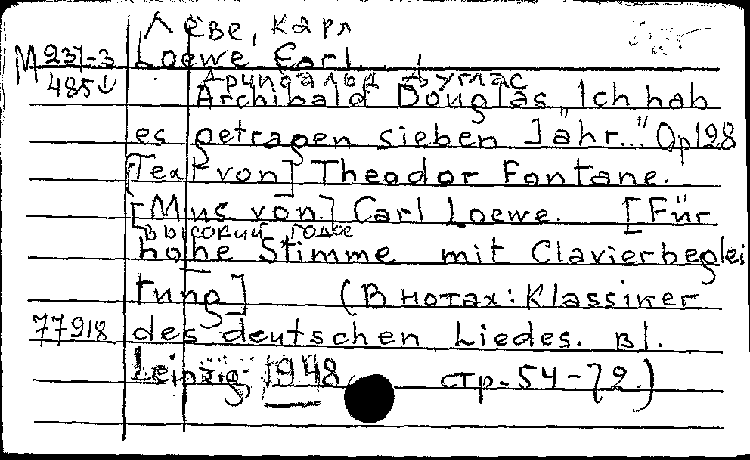 Леве, Карл
М 237-3 Loewe Carl.
485↓ Арчибальд Дуглас
Archibald Douglas „Ich hab
es getragen sieben Jahr..." Op 128
[Text von] Theodor Fontane.
[Mus von] Carl Loewe. [Für
высокий голос
hohe Stimme mit Clavierbeglei
tung] (В нотах: Klassiker
77918 des deutschen Liedes. Bl.
Leipzig, 1948 стр. 54-72.)